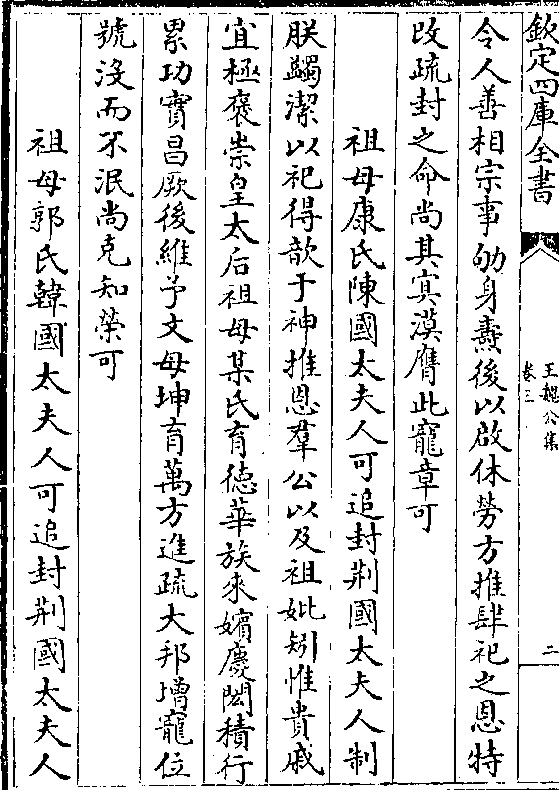 欽定四庫全書
王魏公集
卷三
二
令人善相宗事劬身燾後以啟休勞方推肆祀之恩特
改疏封之命尚其冥漠膺此寵章可
祖母康氏陳國太夫人可追封荆國太夫人制
朕蠲潔以祀得歆于神推恩羣公以及祖妣矧惟貴戚
宜極褒崇皇太后祖母某氏育德華族來嬪慶閎積行
累功實昌厥後維予文母坤育萬方進疏大邦增寵位
號沒而不泯尚克知榮可
祖母郭氏韓國太夫人可追封荆國太夫人